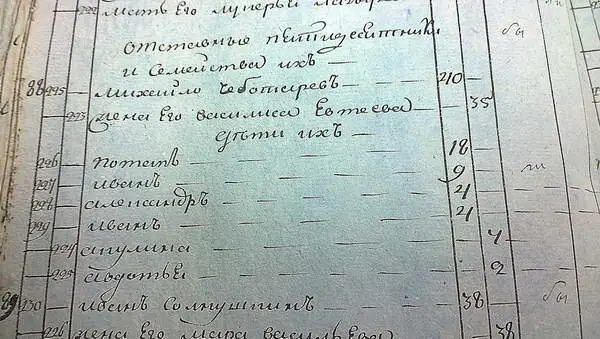 222 мать Его лукерья
отставные пятидесятники бы
и Семейства ихъ
88 225 михайло Чеботаревъ 40
223 жена Его василиса Евтеева 35
дѣти ихъ
226 потапъ 18
227 иванъ 9 ли
228 александръ 4
229 иванъ 4
224 акулина 4
225 авдотья 2
89 230 иванъ Солнушкинъ 38 бы
226 жена Его мара васильева 38